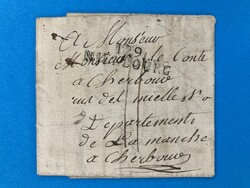 A Monsieur
129
Monsieur Le Conte
a Cherbourg
rue del mielle N o
Departement
de La manche
a Cherbourg